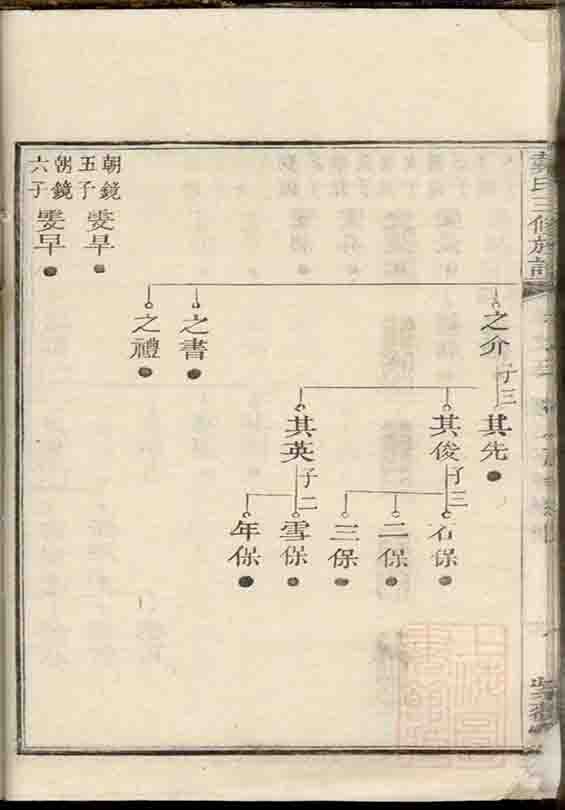 氏三修族譜
之介 子三
其先
其俊 子三
石保
二保
三保
其英 子二
雪保
年保
之書
之禮
朝鏡五子 雯早
朝鏡六子 雯早